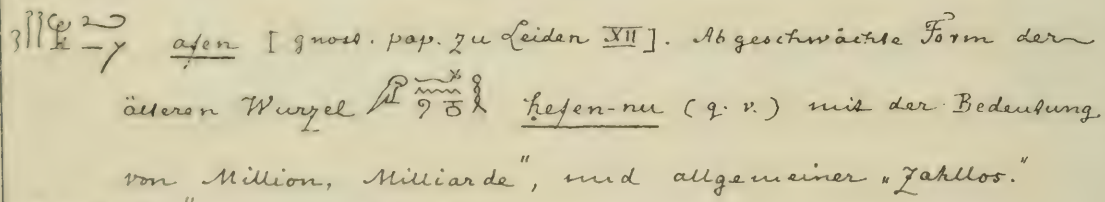 aſen [gnost. pap. zu Leiden XII]. Abgeschwächte Form der
älteren Wurzel ḥeſen-nu (q. v.) mit der Bedeutung
von Million, Milliarde", und allgemeiner „Zahllos."